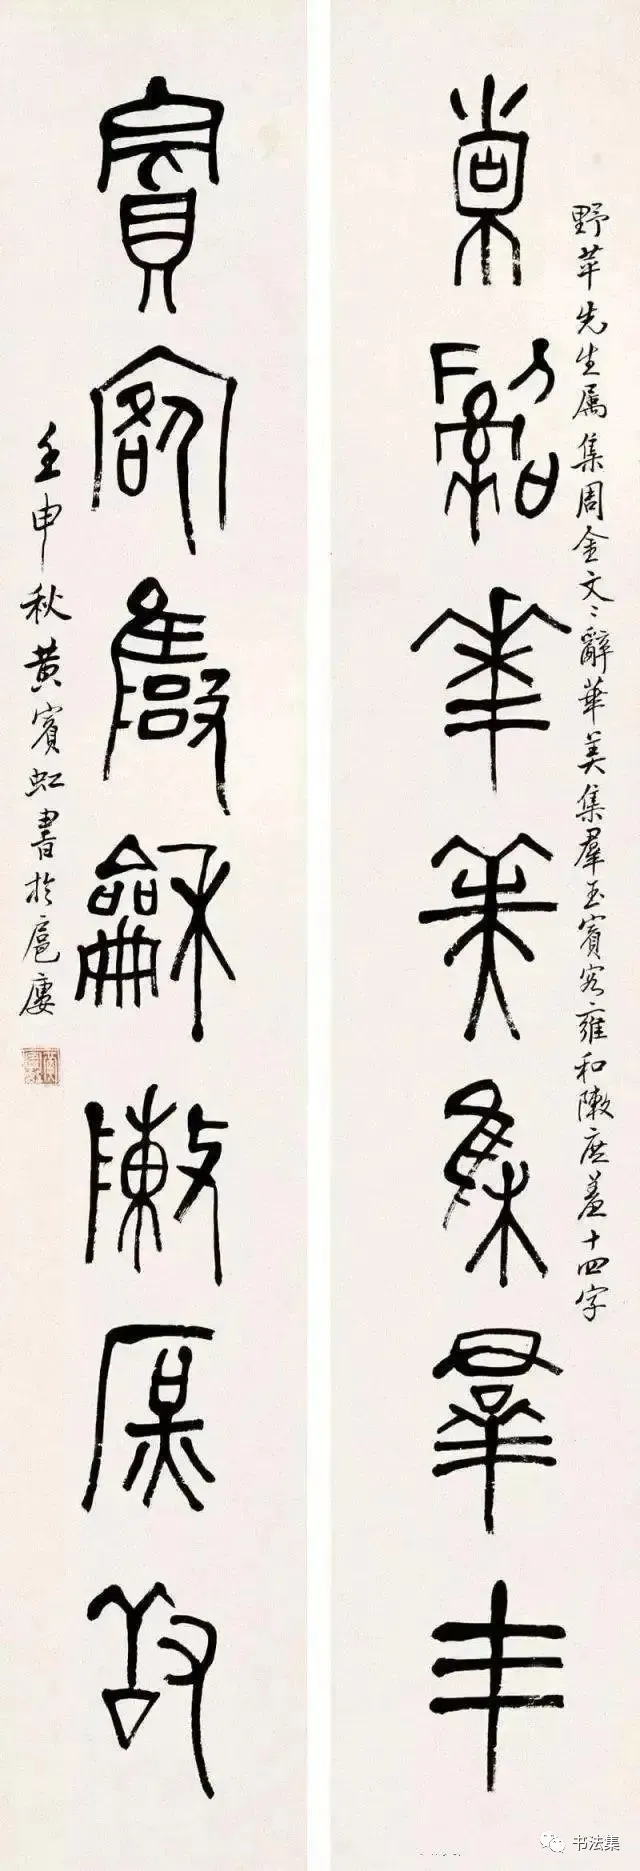 野苹先生属集周金文〻辭華美集羣玉賓客雍和敶庶羞十四字
辭華美集羣玉
賓客雍和敶庶羞
壬申秋黄賓虹書於扈廔
书法集